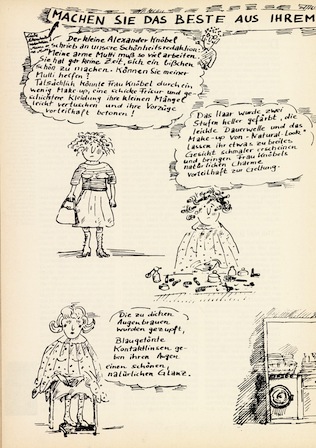 MACHEN SIE DAS BESTE AUS IHREM
Der kleine Alexander Knöbel
schrieb an unsere Schönheitsredaktion:
Meine arme Mutti muß so viel arbeiten.
Sie hat gar keine Zeit, sich ein bißchen
schön zu machen. Können Sie meiner
Mutti helfen?
Tatsächlich könnte Frau Knöbel durch ein
wenig Make up, eine schicke Frisur und ge-
schicktere Kleidung ihre kleinen Mängel
leicht vertuschen und ihre Vorzüge
vorteilhaft betonen!
Das Haar wurde zwei
Stufen heller gefärbt, die
leichte Dauerwelle und das
Make-up von "Natural-Look"
lassen ihr etwas zu breites
Gesicht schmaler erscheinen
und bringen Frau Knöbels
natürlichen Charme
vorteilhaft zur Geltung.
Die zu dicken
Augenbrauen
wurden gezupft,
Blaugetönte
Kontaktlinsen ge-
ben ihren Augen
einen schönen,
natürlichen Glanz.